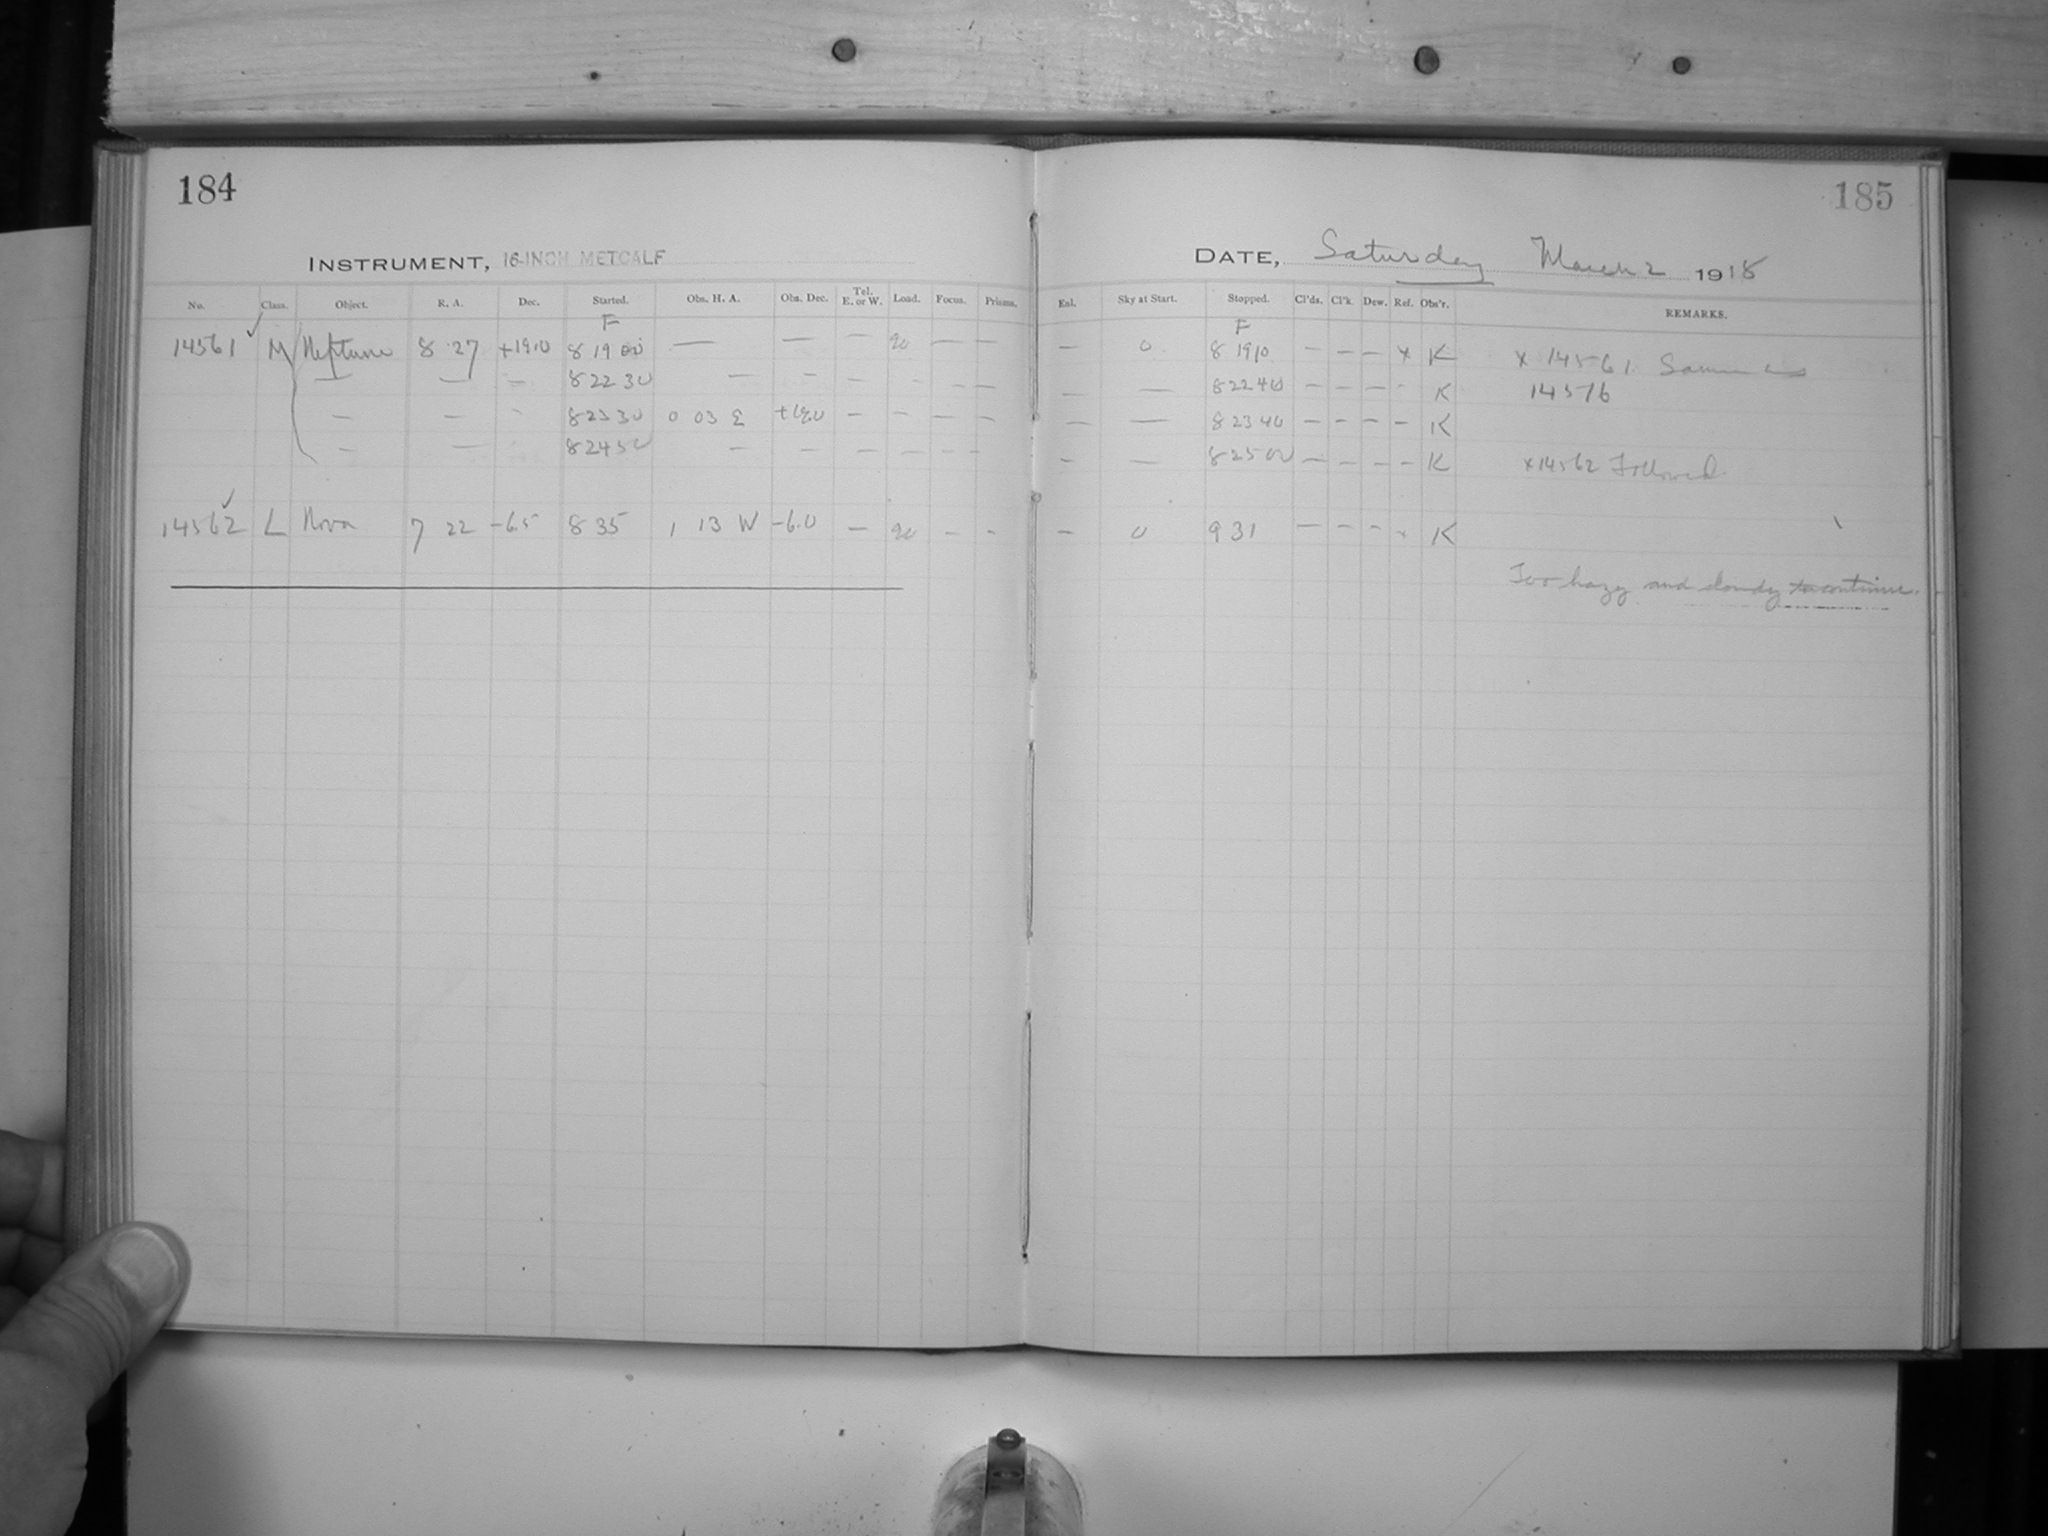 184
INSTRUMENT, 16-INCH METCALF
No. Class. Object. R. A. Dec. Started. Obs. H. A. Obs. Dec. Tel. E. or W. Load. Focus. Prisms.
F
14561 ✓ M Neptune 8 27 +19.0 8 19 00 — — — 20 — —
— — — 8 22 30 — — — — — —
— — — 8 23 30 0 03 E +19.0 — — — —
— — — 8 24 50 — — — — — —
14562 ✓ L Nova 7 22 -6.5 8 35 1 13 W -6.0 — 20 - -
185
DATE, Saturday March 2 1918
Exl. Sky at Start. Stopped. Cl'ds. Cl'k. Dew. Ref. Obs'r. REMARKS.
F
— 0 8 19 10 — — — x K x 14561. Same as
— — 8 22 40 — — — - K 14576
— — 8 23 40 — — — — K
— — 8 25 00 — — — — K x 14562 Followed.
— 0 9 31 — — — x K
Too hazy and cloudy to continue.